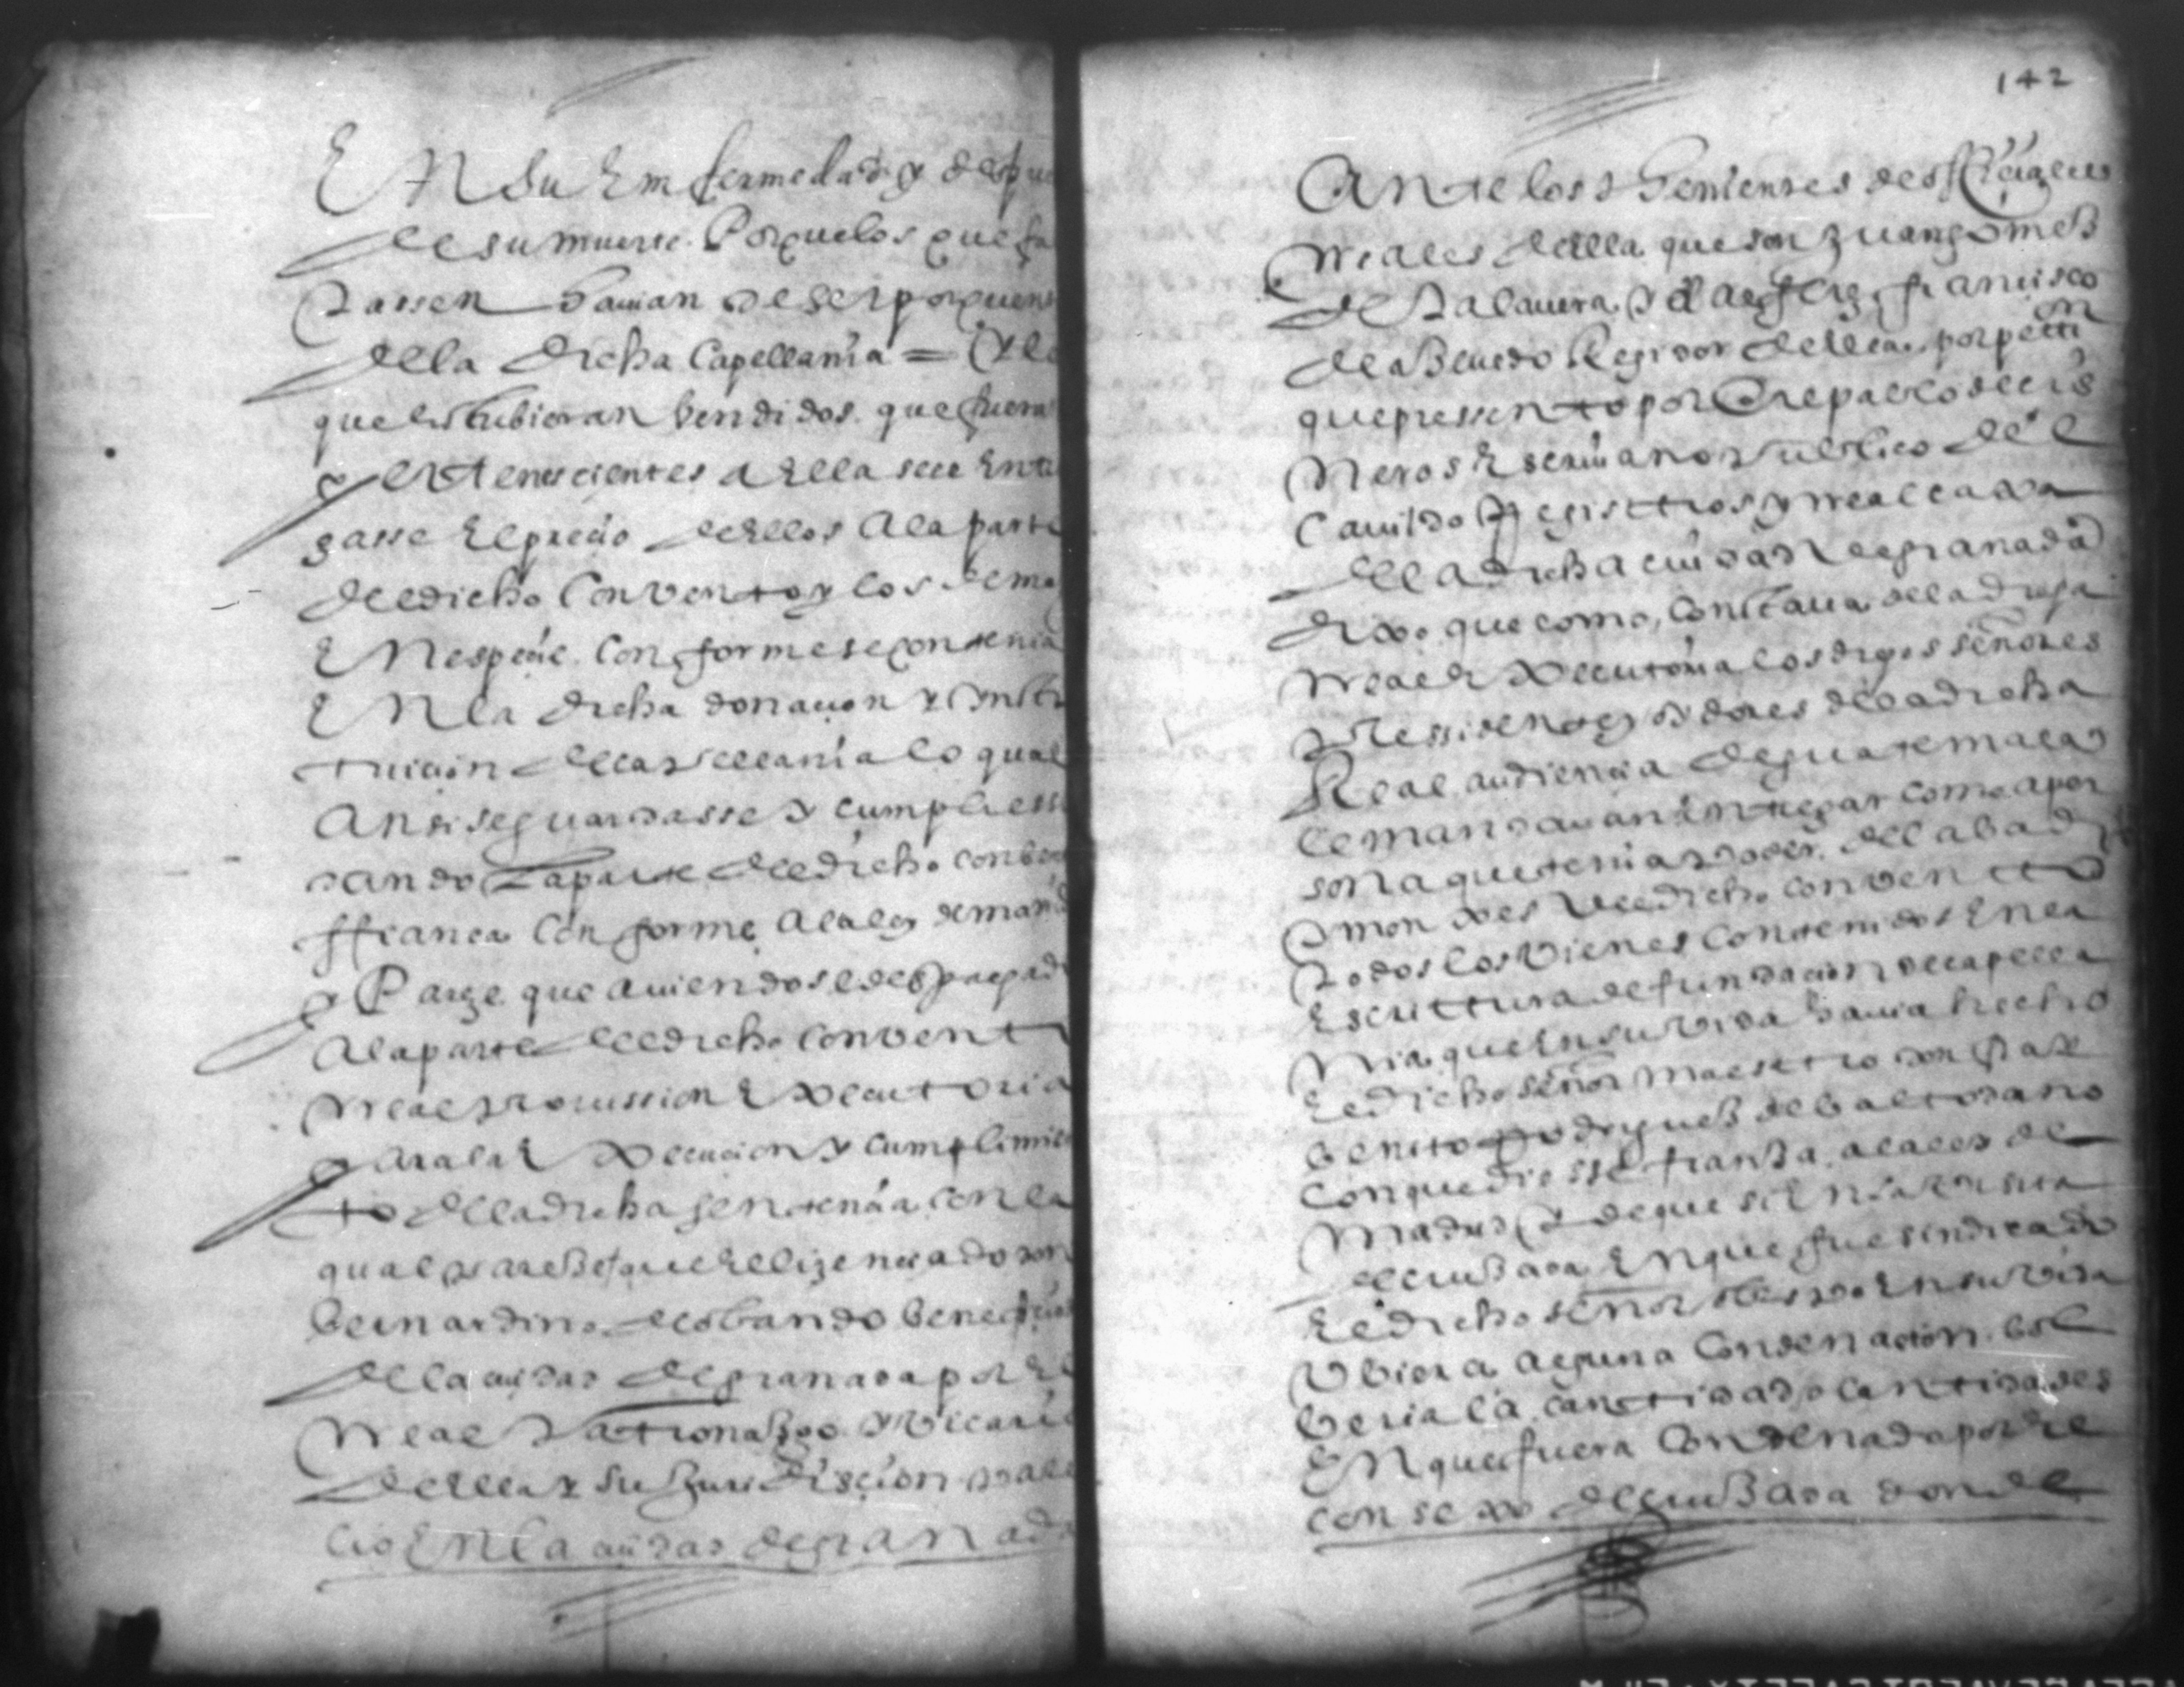 En su Emfermedad y despu
de su muerte. Porque los que fa
tassen hauian de ser por quen
de la dicha Capellanía = Y lo
que estubieran bendidos. que fuera
pertenescientes a Ella se le Entre
gasse El precio de Ellos A la parte
del dicho Convento y los dema
En espeçie. Conforme se contenia
En la dicha donaçion Y Insti
tuicion de capellanía lo qual
Ansi se guardasse Y cumpliess
dando La parte del dicho conben
ffiança Conforme A la ley de madr
Y Pareçe que auiendose despachad
A la parte del dicho Convent
Real Provission Executoria
Para la Execucion Y cumplimien
to de la dicha sentençia con la
qual pareçe que El liçenciado don
bernardino de obando benefiçia
de la ciudad de granada por El
Real Patronazgo Y Vicario
de Ella Y su Jurisdiscion pare
cio En la ciudad de granada
142
Ante los thenientes de offiçiales
Reales de Ella que son Juan gomes
de talauera Y el alferez francisco
de açeuedo Regidor de Ella. por petiçion
que pressento por Ante pablo de cis
neros Escriuano Publico del
Cauildo Registros y Real caxa
de la dicha ciudad de granada
dixo. que como, Constaua de la dicha
Real Executoria los dichos señores
Pressidente y oydores de la dicha
Real audiencia de guatemala
le mandauan Entregar como a per
sona que tenia Poder. de la abadesa
Y monxas del dicho convento
todos los Vienes Contenidos En la
Escrittura de fundacion de capella
nia que En su Vida hauia hecho
El dicho señor maestro don fray
benito Rodrigues de baltodano
con que diesse fianza a la ley de
madrid Y de que si En la Visita
de cruzada En que fue sindicado
El dicho señor obispo En su Vida
Vbiera alguna Condenaçion. bol
beria la canttidad o canttidades
En que fuera Condenado por El
consexo de cruzada donde